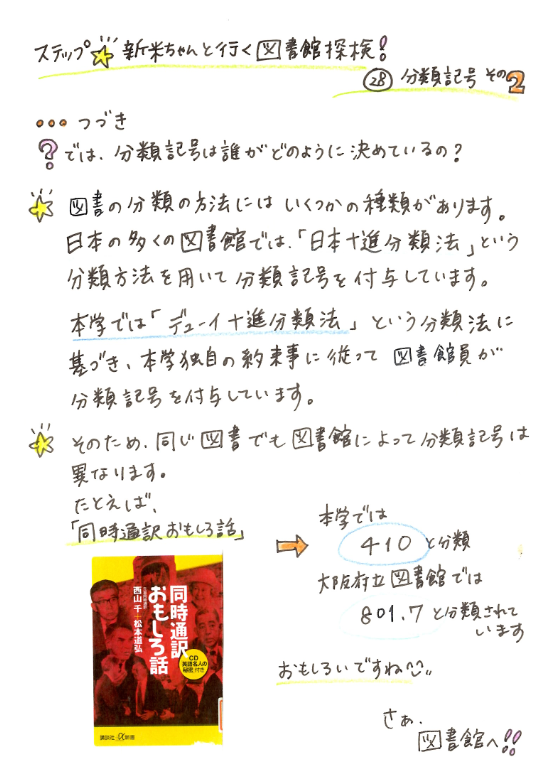 ステップ 新米ちゃんと行く 図書館探検!
㉘ 分類記号 その2
••• つづき
? では、分類記号は誰がどのように決めているの?
図書の分類の方法には いくつかの種類があります。
日本の多くの図書館では、「日本十進分類法」という
分類方法を用いて分類記号を付与しています。
本学では「デューイ十進分類法」という分類法に
基づき、本学独自の約束事に従って 図書館員が
分類記号を付与しています。
そのため、同じ図書でも図書館によって分類記号は
異なります。
たとえば、
「同時通訳おもしろ話」
本学では
410 と分類
大阪府立図書館では
801.7 と分類されて
います
おもしろいですね
さぁ、
図書館へ!!
同時通訳
おもしろ話
西山千+松本道弘
CD
英語名人の
秘史付き
講談社+α新書